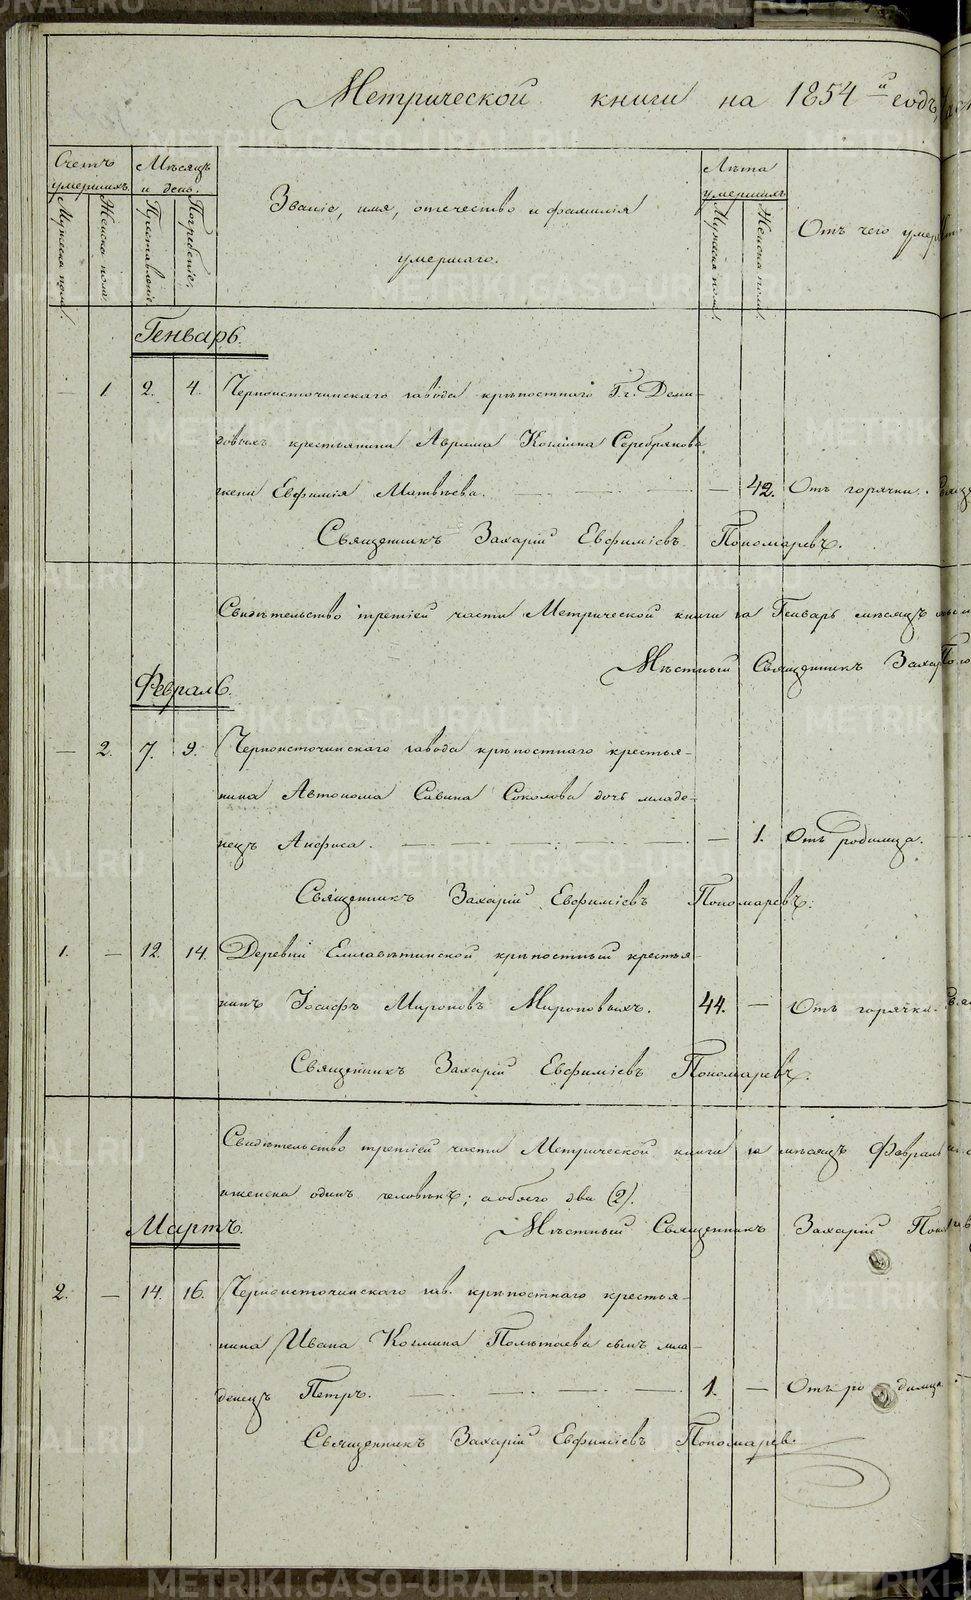 Метрической книги на 1854й годъ,
Счетъ умершихъ.
Мѣсяцъ и день.
Званіе, имя, отечество и фамилія
умершаго.
Лѣта умершихъ
Отъ чего умер
Мужеска пола.
Женска пола.
Преставленіе.
Погребеніе.
Мужеска пола.
Женска пола.
Генварь.
— 1 2. 4. Черноисточинскаго завода крѣпостнаго Г.г. Деми-
довыхъ крестьянина Аврама Козмина Серебрякова
жена Евфимія Матвѣева. — 42. Отъ горячки.
Священникъ Захарій Евфиміевъ Пономаревъ.
Свидѣтельство третіей части Метрической книги за Генварь мѣсяцъ
Мѣстный Священникъ Захар
Февраль.
— 2. 7. 9. Черноисточинскаго завода крѣпостнаго крестья-
нина Автонома Савина Соколова дочь младе-
нецъ Анфиса. — 1. Отъ родимца.
Священникъ Захарій Евфиміевъ Пономаревъ.
1. — 12. 14. Деревни Елисавѣтинской крѣпостный крестья-
нинъ Іосифъ Мироновъ Мироновыхъ. 44. — Отъ горячки.
Священникъ Захарій Евфиміевъ Пономаревъ.
Свидѣтельство третіей части Метрической книги за мѣсяцъ Февраль
женска одинъ человѣкъ; а обоего два (2).
Мартъ.
Мѣстный Священникъ Захарій Поно
2. — 14. 16. Черноисточинскаго зав. крѣпостнаго крестья-
нина Ивана Козмина Полѣтаева сынъ мла-
денецъ Петръ. 1. — Отъ родимца
Священникъ Захарій Евфиміевъ Пономаревъ.
METRIKI.GASO-URAL.RU